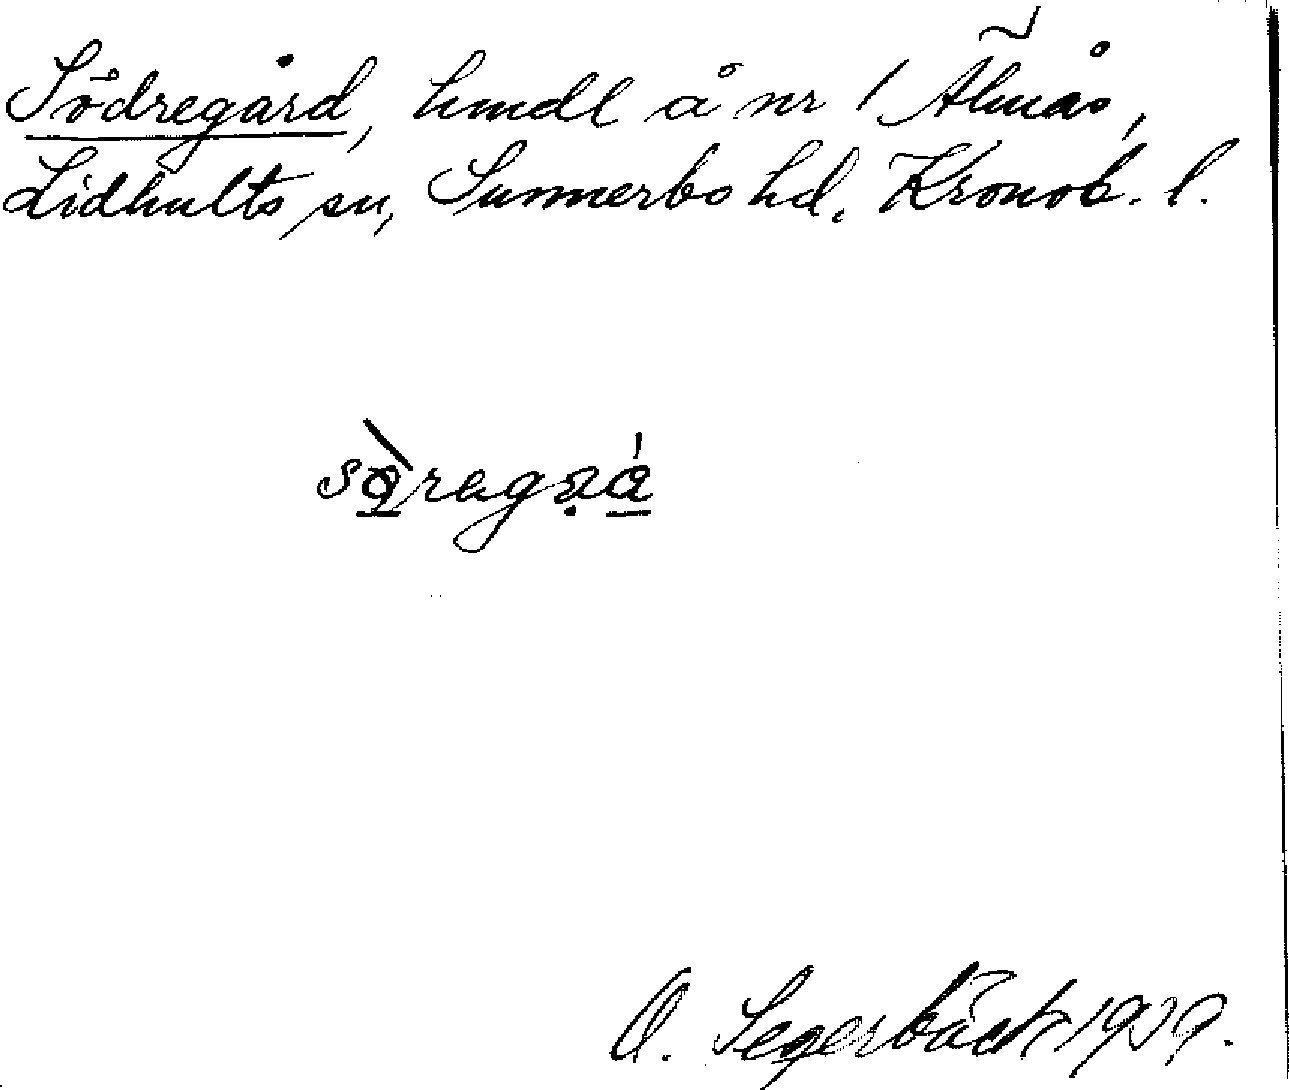 Södregård, hmdl å nr 1 Älmås,
Lidhults sn, Sunnerbo hd, Kronob. l.
O. Segerbäck 1939.